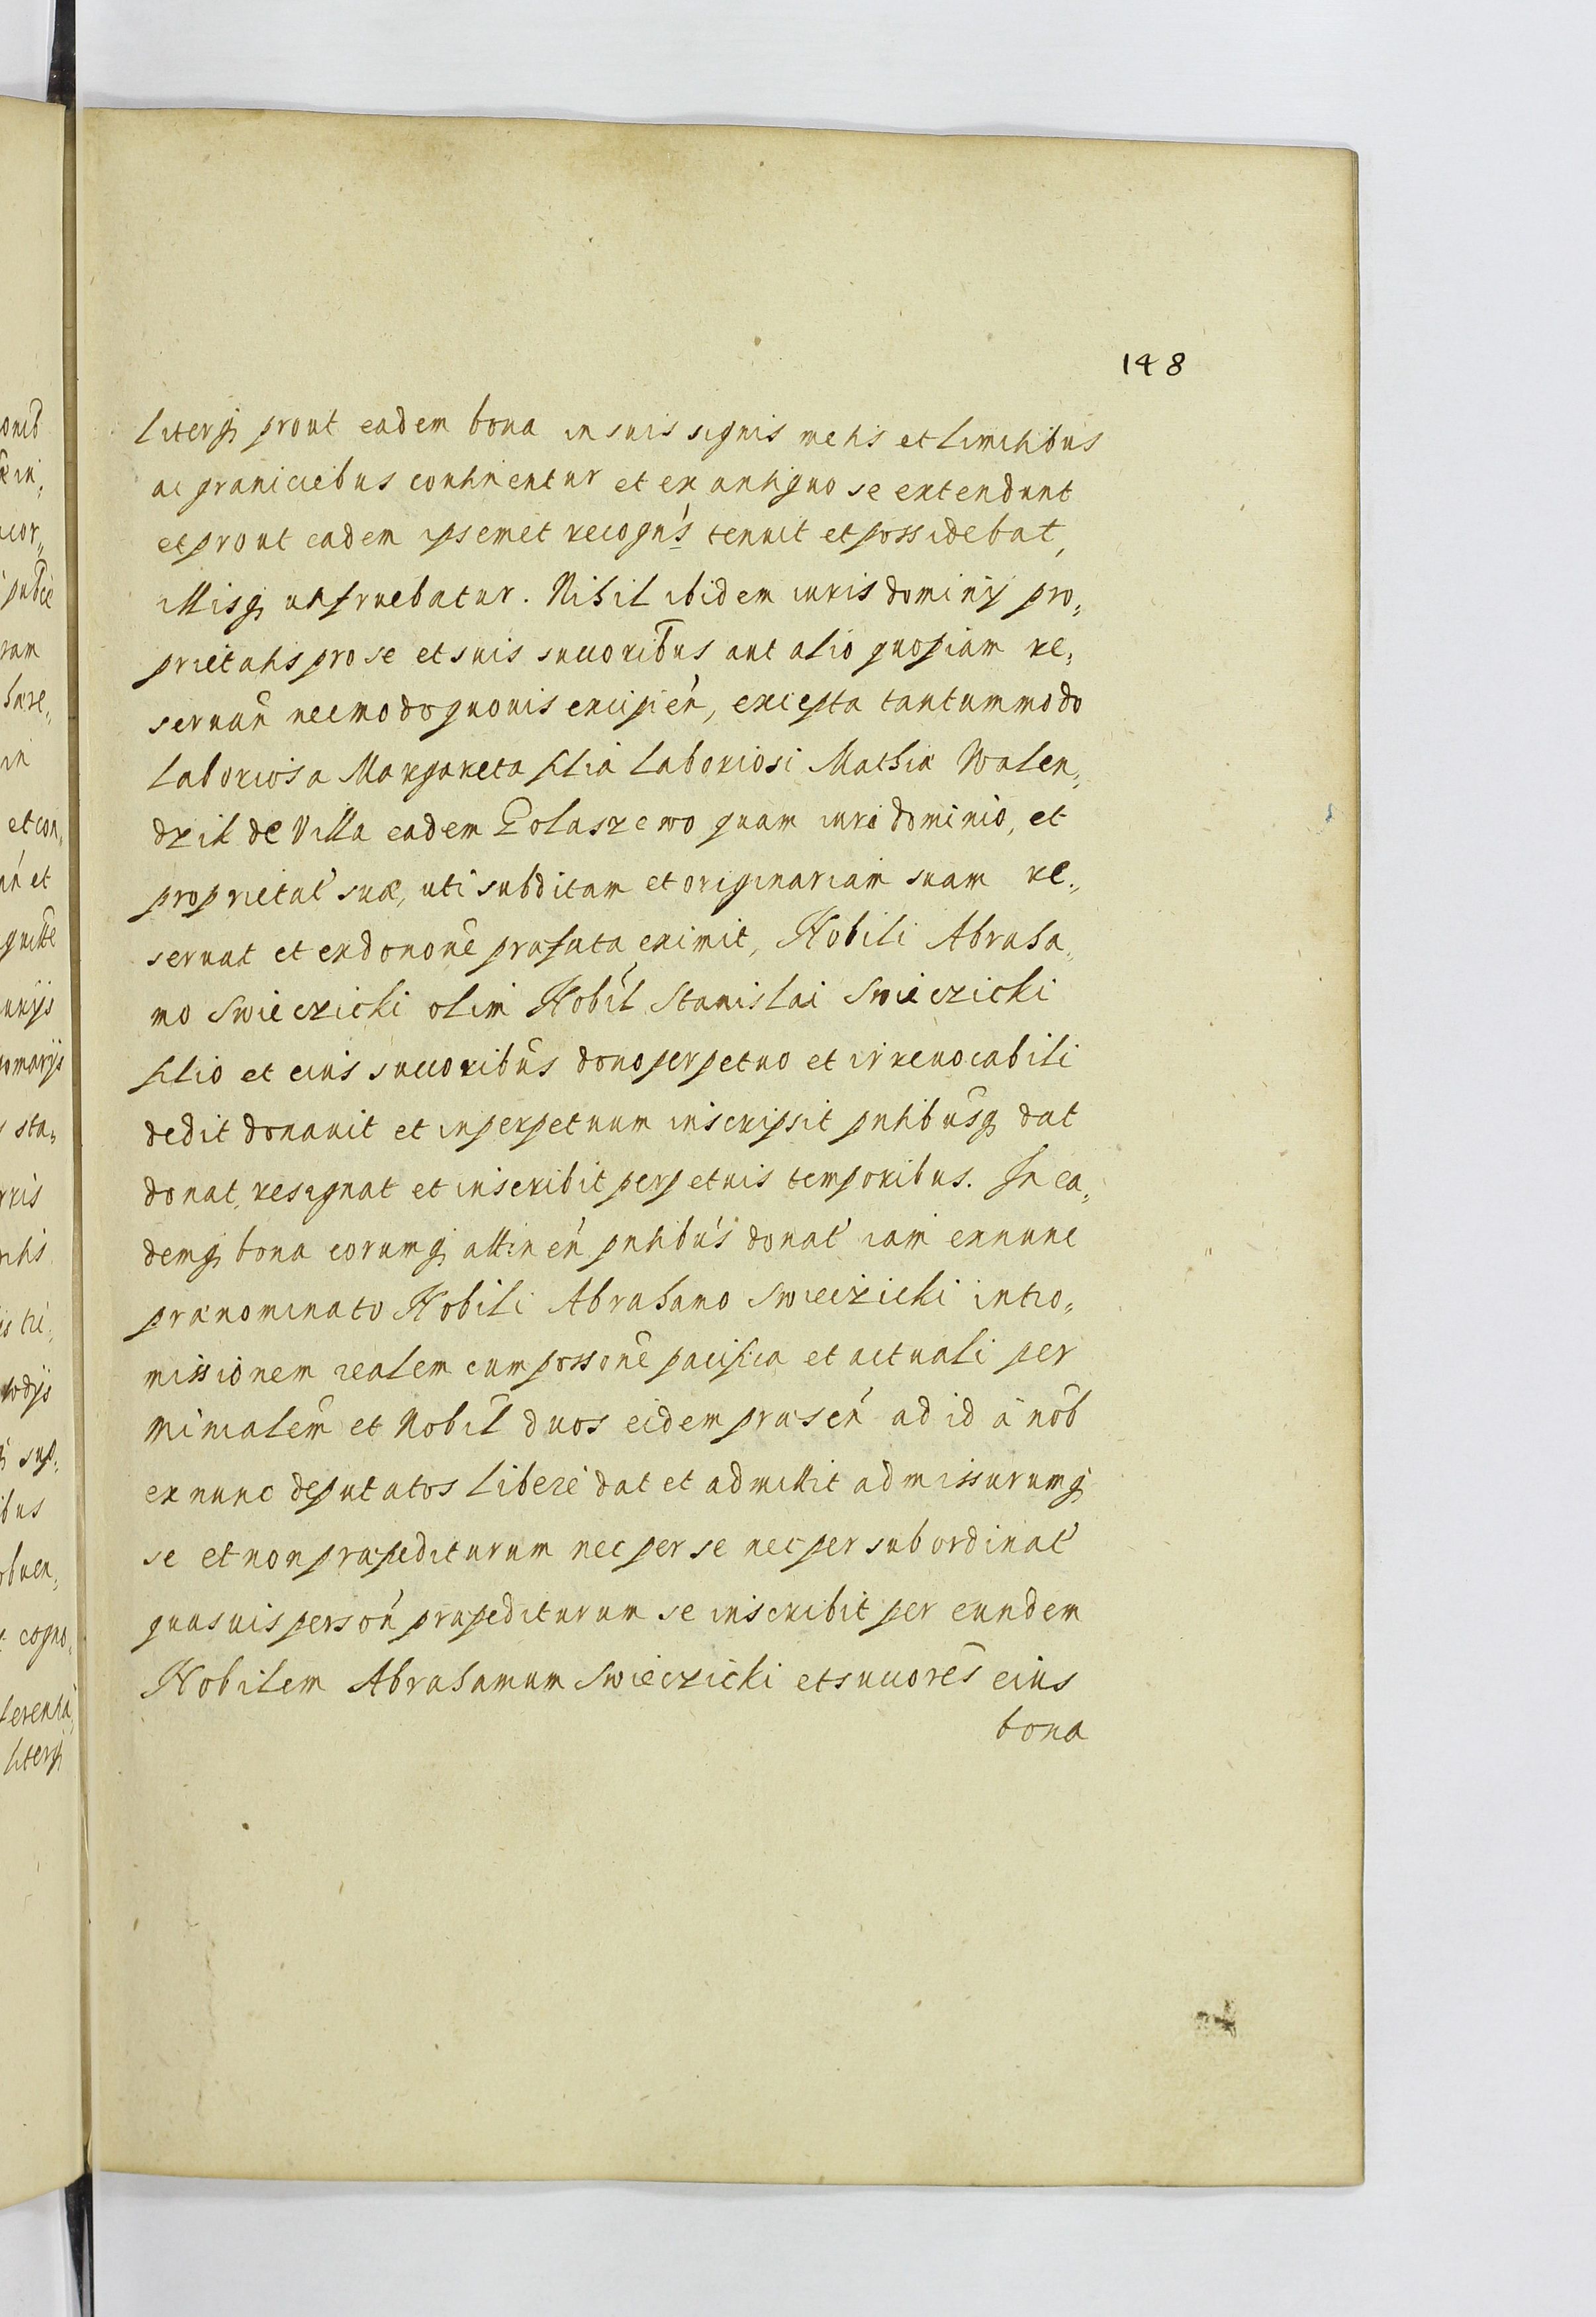 148
literq; prout eadem bona in suis signis metis et limitibus
ac graniciebus continentur et ex antiquo se extendunt
et prout eadem ipsemet recogns tenuit et possidebat,
illisq; utifruebatur. Nihil ibidem iuris dominij pro„
prietatis pro se et suis succoribus aut alio quopiam re„
seruan̄ nec modo quouis excipień, excepta tantummodo
laboriosa Margareta filia laboriosi Mathiæ Walen„
dzik de Villa eadem Golaszewo quam iuri dominio, et
proprietat̕ suæ, uti subditam et originariam suam re„
seruat et ex donone̅ præfata eximit, Nobili Abraha„
mo Swieczicki olim Nobil̕ Stanislai Swieczicki
filio et eius succoribus dono perpetuo et irreuocabili
dedit donauit et in perpetuum inscripsit pntibusq; dat
donat, resignat et inscribit perpetuis temporibus. In ea„
demq; bona eorumq; attinen̕ pntibus donat̕ iam ex nunc
prænominato Nobili Abrahamo Swieczicki intro„
missionem realem cum possone̅ pacifica et actuali per
Minialem̅ et Nobil̕ duos eidem præsen̕ ad id à nob̅
ex nunc deputatos liberè dat et admittit admissurumq;
se et non præpediturum nec per se nec per subordinat̕
quasuis person̕ præpediturum se inscribit per eundem
Nobilem Abrahamum Swieczicki et succores̅ eius
bona